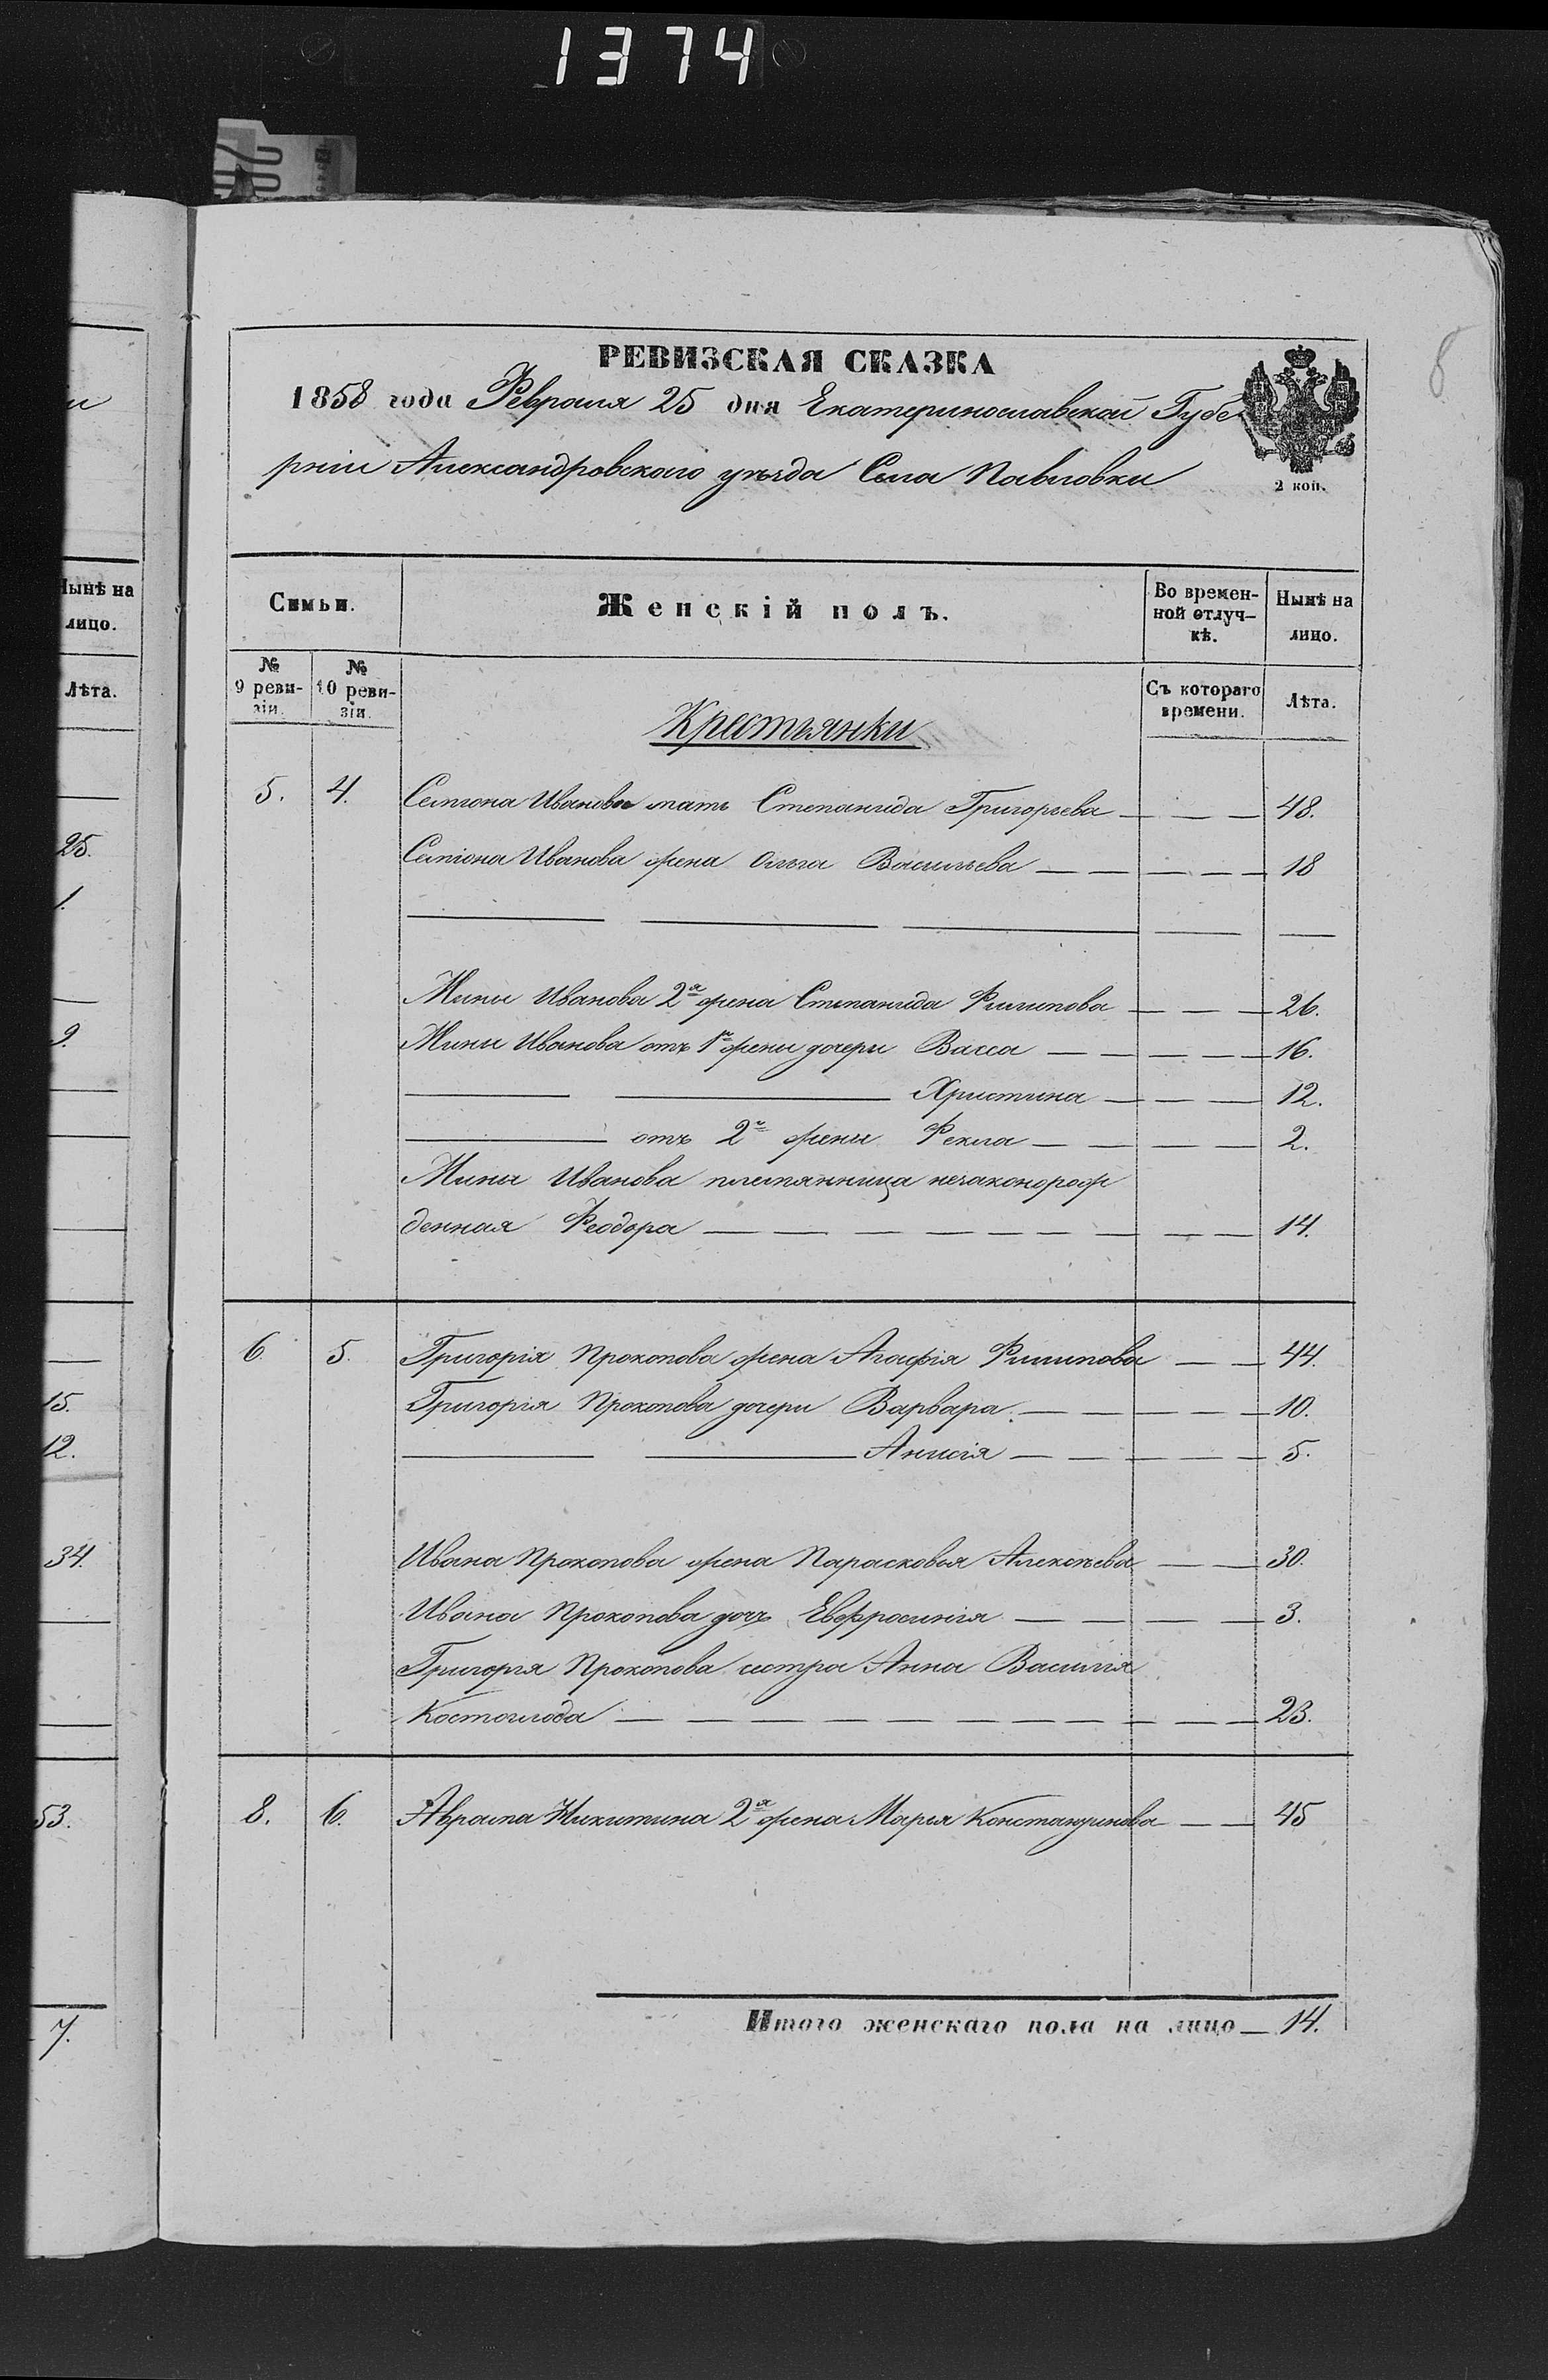 1374
8
РЕВИЗСКАЯ СКАЗКА
1858 года Февраля 25 дня Екатеринославской Губе
рніи Александровскаго уѣзда Села Павловки
2 коп.
Нынѣ на
лицо.
Лѣта.
25.
1.
9.
15.
12.
34.
53.
7.
Семьи.
Женскій полъ.
Во времен-
ной отлуч-
кѣ.
Нынѣ на
лицо.
№
9 реви-
зіи.
№
10 реви-
зіи.
Съ котораго
времени.
Лѣта.
Крестьянки
5. 4. Семіона Иванова мать Степанида Григорьева — — — 48.
Семіона Иванова жена Ольга Васильева — — — — — 18
Мины Иванова 2я жена Степанида Филипова — — — 26.
Мины Иванова отъ 1й жены дочери Васса — — — — — 16.
Христина — — — 12.
отъ 2й жены Фекла — — — — 2.
Мины Иванова племянница незаконорож
денная Феодора — — — — — — — — — 14.
6. 5. Григорія Прокопова жена Агафія Филипова — — 44.
Григорія Прокопова дочери Варвара — — — — — 10.
Анисія — — — — — 5.
Ивана Прокопова жена Парасковья Алексѣева — — 30.
Ивана Прокопова дочь Евфросинія — — — — 3.
Григорія Прокопова сестра Анна Василія
Костоглода — — — — — — — — — — — — 23.
8. 6. Аврама Никитина 2я жена Марья Константинова — — 45
Итого женскаго пола на лицо — 14.